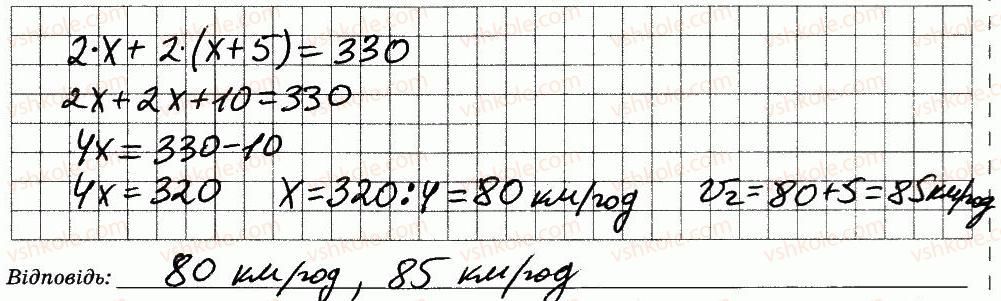 2·x + 2·(x+5) = 330
2x + 2x + 10 = 330
4x = 330 - 10
4x = 320 x = 320 : 4 = 80 км/год v₂ = 80 + 5 = 85 км/год
Відповідь: 80 км/год, 85 км/год
vshkole.com